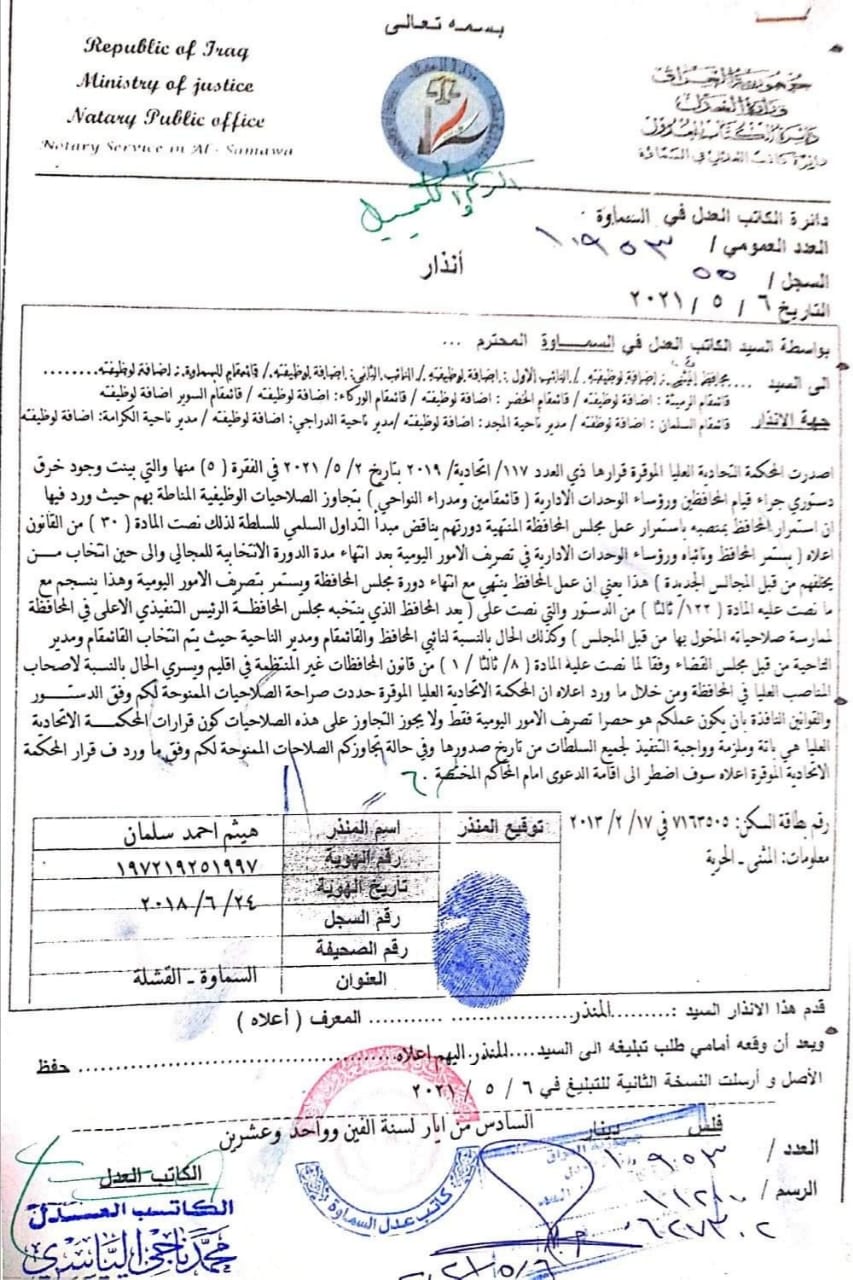 بسمه تعالى
Republic of Iraq
Ministry of justice
Natary Public office
Notary Service in Al-Samawa
جمهورية العراق
وزارة العدل
دائرة الكتاب العدول
دائرة كاتب العدل في السماوة
دائرة الكاتب العدل في السماوة
العدد العمومي / ١٠٩٥٣
السجل / ٥٥
التاريخ ٦ / ٥ / ٢٠٢١
أنذار
بواسطة السيد الكاتب العدل في السماوة المحترم ...
الى السيد .... محافظ المثنى : اضافة لوظيفته / النائب الاول : اضافة لوظيفته / النائب الثاني: اضافة لوظيفته / قائمقام السماوة : اضافة لوظيفته........
قائمقام الرميثة : اضافة لوظيفته / قائمقام الخضر : اضافة لوظيفته / قائمقام الوركاء: اضافة لوظيفته / قائمقام السوير اضافة لوظيفته
جهة الانذار قائمقام السلمان : اضافة لوظفته / مدير ناحية المجد: اضافة لوظيفته /مدير ناحية الدراجي: اضافة لوظيفته / مدير ناحية الكرامة: اضافة لوظيفته
اصدرت المحكمة التحادية العليا الموقرة قرارها ذي العدد ١١٧/ اتحادية/ ٢٠١٩ بتاريخ ٢ /٥ / ٢٠٢١ في الفقرة (٥) منها والتي بينت وجود خرق
دستوري جراء قيام المحافظين ورؤساء الوحدات الادارية ( قائمقامين ومدراء النواحي ) بتجاوز الصلاحيات الوظيفية المناطة بهم حيث ورد فيها
ان استمرار المحافظ بمنصبه باستمرار عمل مجلس المحافظة المنتهية دورتهم يناقض مبدأ التداول السلمي للسلطة لذلك نصت المادة ( ٣٠ ) من القانون
اعلاه ( يستمر المحافظ ونائباه ورؤساء الوحدات الادارية في تصرف الامور اليومية بعد انتهاء مدة الدورة الانتخابية للمجالي والى حين انتخاب مــن
يخلفهم من قبل المجالس الجديدة ) هذا يعني ان عمل المحافظ ينتهي مع انتهاء دورة مجلس المحافظة ويستمر بتصرف الامور اليومية وهذا ينسجم مع
ما نصت عليه المادة ( ١٢٢/ ثالثاً ) من الدستور والتي نصت على ( يعد المحافظ الذي ينتخبه مجلس المحافظـة الرئيس التنفيذي الاعلى في المحافظة
لممارسة صلاحياته المخول بها من قبل المجلس ) وكذلك الحال بالنسبة لنائبي المحافظ والقائمقام ومدير الناحية حيث يتم انتخاب القائمقام ومدير
الناحية من قبل مجلس القضاء وفقا لما نصت عليه المادة ( ٨/ ثالثاً / ١ ) من قانون المحافظات غير المنتظمة في اقليم ويسري الحال بالنسبة لاصحاب
المناصب العليا في المحافظة ومن خلال ما ورد اعلاه ان المحكمة الاتحادية العليا الموقرة حددت صراحة الصلاحيات الممنوحة لكم وفق الدستــور
والقوانين النافذة بان يكون عملكم هو حصرا تصرف الامور اليومية فقط ولا يجوز التجاوز على هذه الصلاحيات كون قرارات المحكمــة الاتحادية
العليا هي باتة وملزمة وواجبة التنفيذ لجميع السلطات من تاريخ صدورها وفي حالة تجاوزكم الصلاحات الممنوحة لكم وفق ما ورد ف قرار المحكمة
الاتحادية الموقرة اعلاه سوف اضطر الى اقامة الدعوى امام المحاكم المختصة .
رقم بطاقة السكن: ٧١٦٣٥٠٥ في ١٧/ ٢/ ٢٠١٣
معلومات: المثنى ـ الحرية
توقيع المنذر
اسم المنذر هيثم احمد سلمان
رقم الهوية ١٩٧٢١٩٢٥١٩٩٧
تاريخ الهوية ٢٤/ ٦/ ٢٠١٨
رقم السجل
رقم الصحيفة
العنوان السماوة ـ القشلة
قدم هذا الانذار السيد :.........المنذر............................ المعرف ( أعلاه )
وبعد أن وقعه أمامي طلب تبليغه الى السيد....المنذر اليهم اعلاه................................................ حفظ
الأصل و أرسلت النسخة الثانية للتبليغ في ٦ / ٥ / ٢٠٢١
السادس من ايار لسنة الفين وواحد وعشرين
فلس دينار
العدد / ١٠٩٥٣
الرسم /
كاتب عدل السماوة
الكاتب العدل
الكاتب العدل
محمد ناجي الياسري